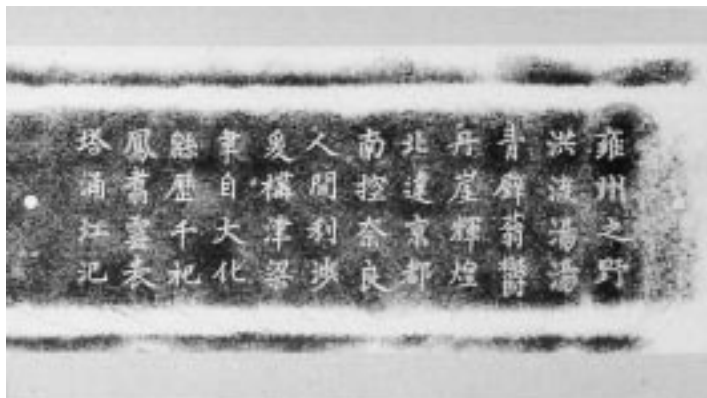 雍州之野
洪漣湯湯
青壁蓊鬱
丹崖輝煌
北達京都
南控奈良
人間利渉
爰構津梁
肇自大化
緜歴千祀
鳳翥雲表
塔涌江汜